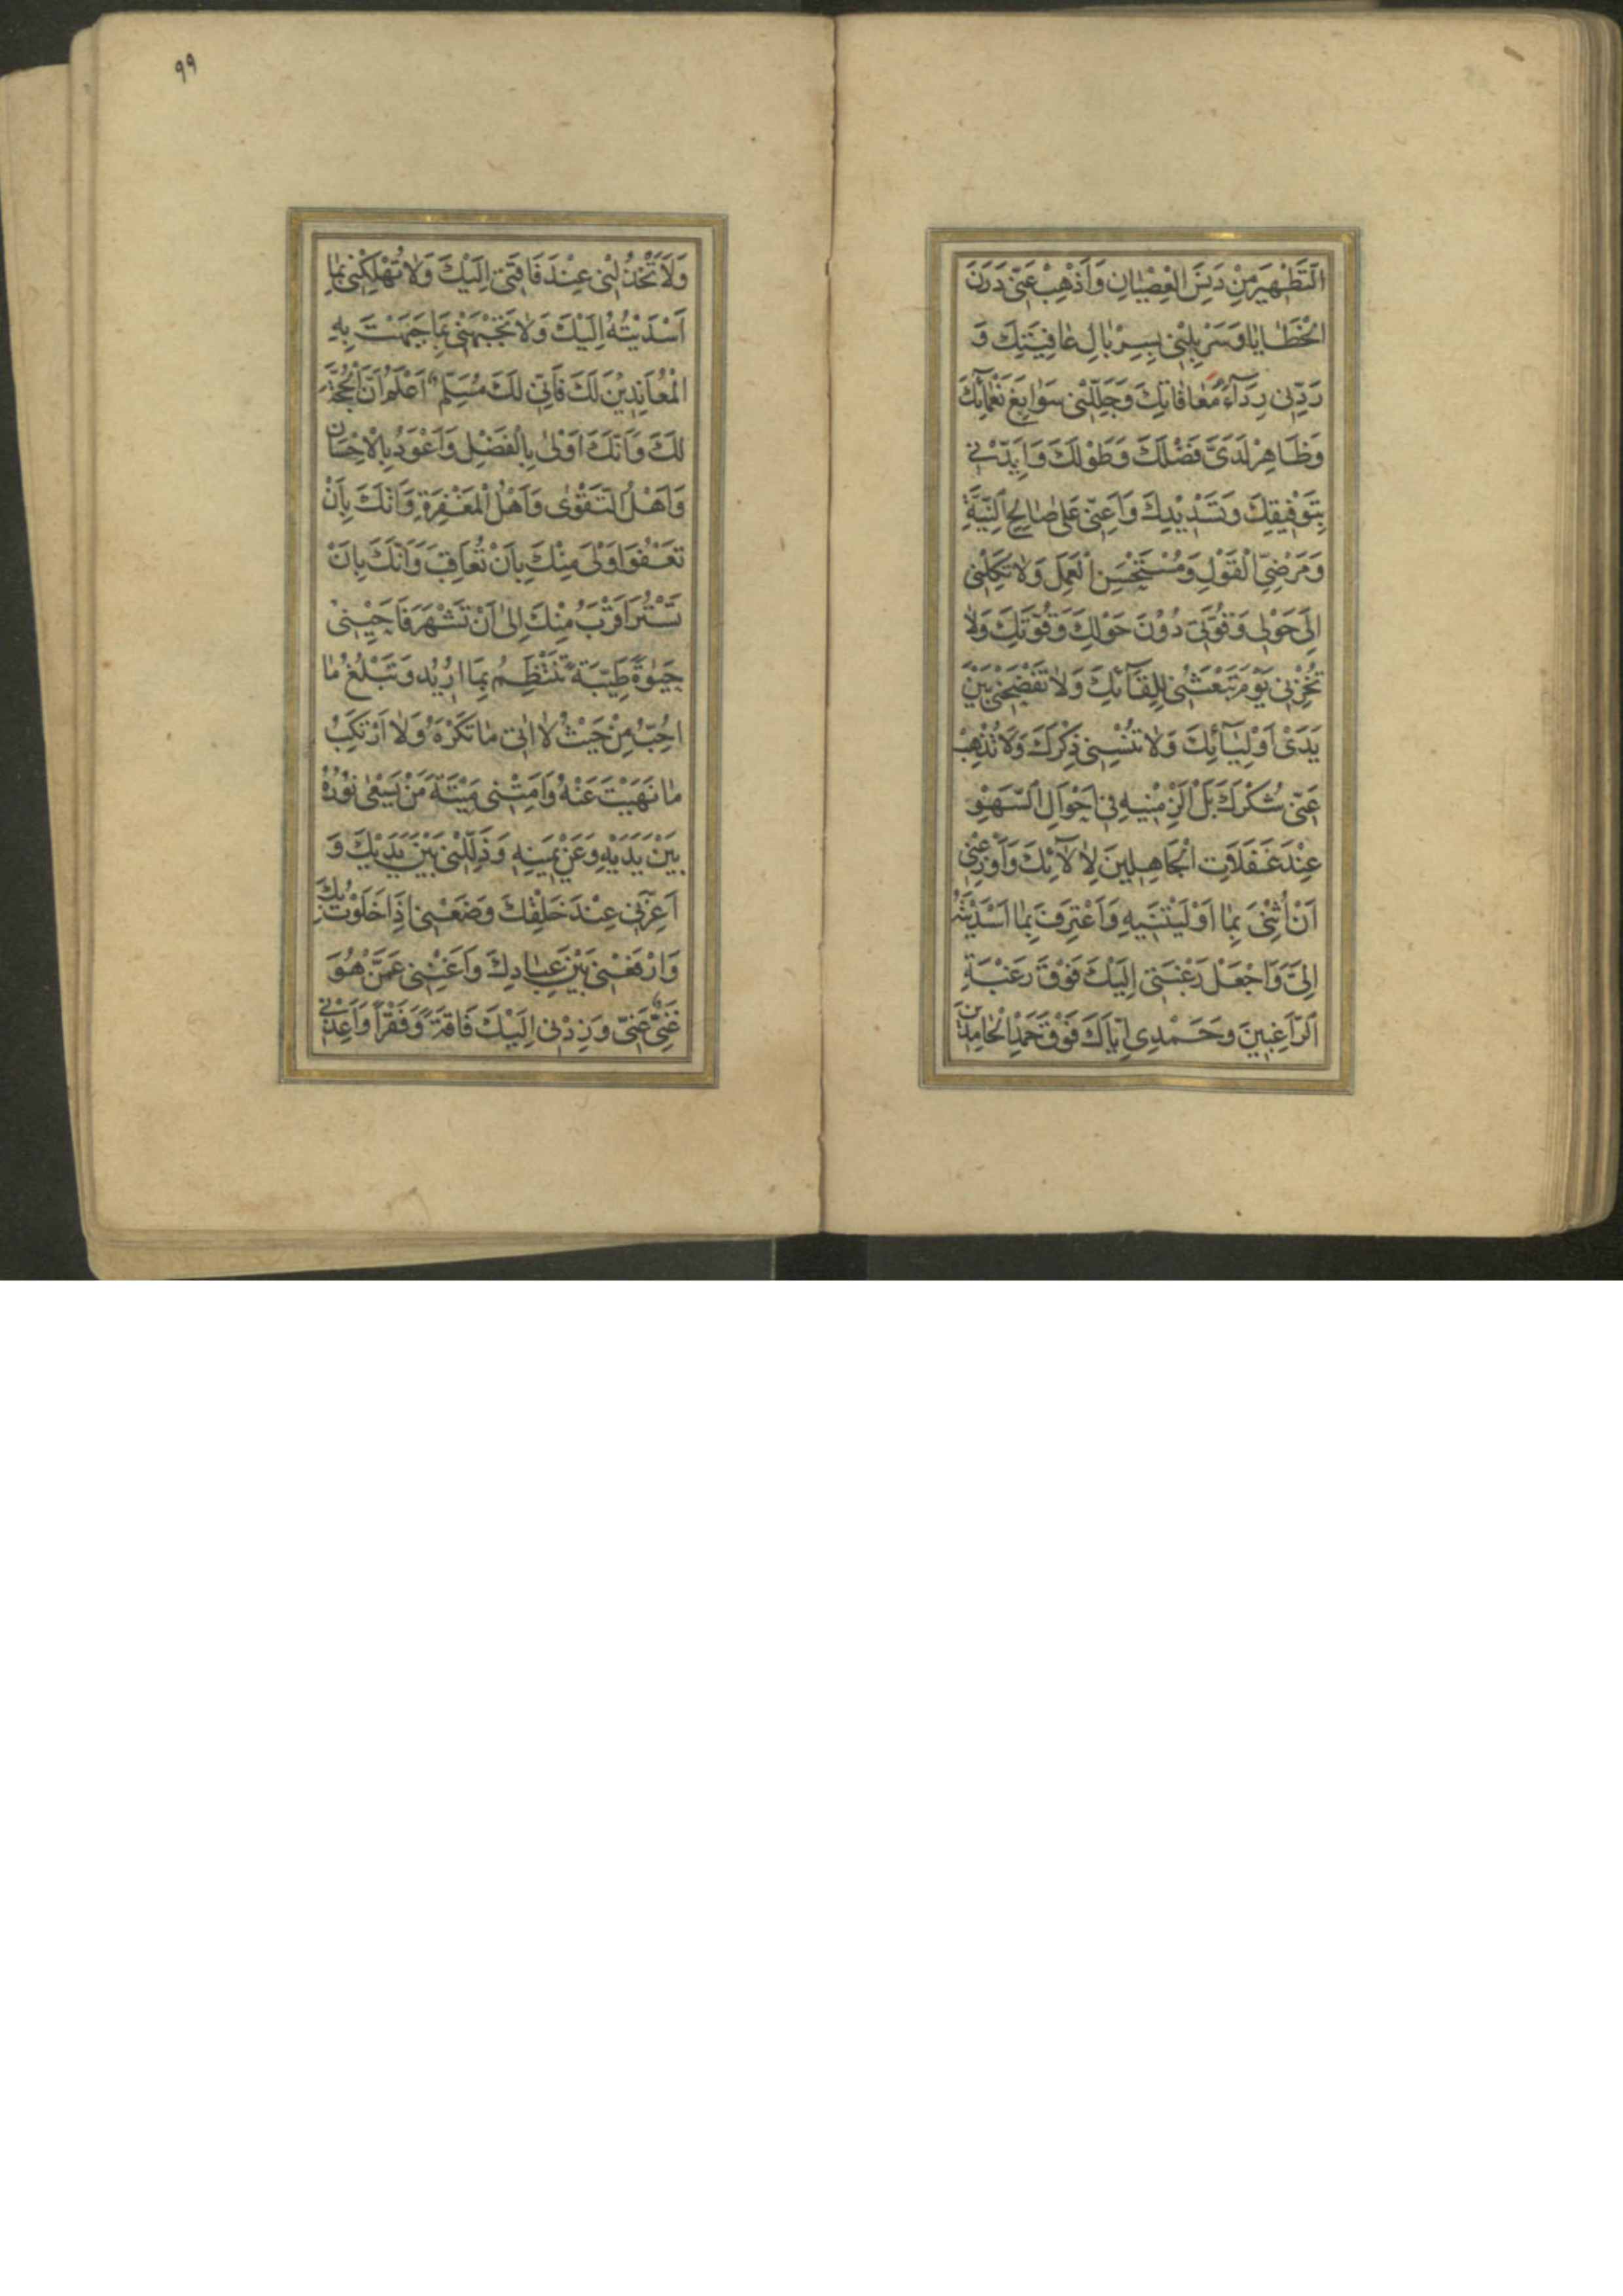 اَلتَّطْهِيرَ مِنْ دَنَسِ الْعِصْيَانِ وَاَذْهِبْ عَنّى دَرَنَ
الْخَطَايَا وَسَرْبِلْنى بِسِرْبَالِ عَافِيَتِكَ وَ
رَدِّنى رِدَآءَ مُعَافَاتِكَ وَجَلِّلْنى سَوَابِغَ نَعْمَآئِكَ
وَظَاهِرْ لَدَىَّ فَضْلَكَ وَطَوْلَكَ وَاَيِّدْنى
بِتَوْفِيقِكَ وَتَسْدِيْدِكَ وَاَعِنّى عَلى صَالِحِ النِّيَّةِ
وَمَرْضِىِّ الْقَوْلِ وَمُسْتَحْسَنِ الْعَمَلِ وَلَا تَكِلْنى
اِلى حَوْلى وَقُوَّتى دُوْنَ حَوْلِكَ وَقُوَّتِكَ وَلَا
تُخْزِنى يَوْمَ تَبْعَثُنى لِلِقَآئِكَ وَلَا تَفْضَحْنى بَيْنَ
يَدَىْ اَوْلِيَآئِكَ وَلَا تُنْسِنى ذِكْرَكَ وَلَا تُذْهِبْ
عَنّى شُكْرَكَ بَلْ اَلْزِمْنيهِ فى اَحْوَالِ السَّهْوِ
عِنْدَ غَفَلَاتِ الْجَاهِلِينَ لِاٰلَآئِكَ وَاَوْزِعْنى
اَنْ اُثْنِىَ بِمَا اَوْلَيْتَنيهِ وَاَعْتَرِفَ بِمَا اَسْدَيْتَهُ
اِلَىَّ وَاجْعَلْ رَغْبَتى اِلَيْكَ فَوْقَ رَغْبَةِ
الرَّاغِبينَ وَحَمْدِى اِيَّاكَ فَوْقَ حَمْدِ الْحَامِدينَ
وَلَا تَخْذُلْنى عِنْدَ فَاقَتى اِلَيْكَ وَلَا تُهْلِكْنى بِمَا
اَسْدَيْتُهُ اِلَيْكَ وَلَا تَجْبَهْنى بِمَا جَبَهْتَ بِهِ
الْمُعَانِدِيْنَ لَكَ فَاِنّى لَكَ مُسَلِّمٌ اَعْلَمُ اَنَّ الْحُجَّةَ
لَكَ وَاَنَّكَ اَوْلى بِالْفَضْلِ وَاَعْوَدُ بِالْاِحْسَانِ
وَاَهْلُ التَّقْوٰى وَاَهْلُ الْمَغْفِرَةِ وَاَنَّكَ بِاَنْ
تَعْفُوَ اَوْلى مِنْكَ بِاَنْ تُعَاقِبَ وَاَنَّكَ بِاَنْ
تَسْتُرَ اَقْرَبُ مِنْكَ اِلى اَنْ تَشْهَرَ فَاَحْيِنى
حَيٰوةً طَيِّبَةً تَنْتَظِمُ بِمَا اُرِيْدُ وَتَبْلُغُ مَا
اُحِبُّ مِنْ حَيْثُ لَا اٰتى مَا تَكْرَهُ وَلَا اَرْتَكِبُ
مَا نَهَيْتَ عَنْهُ وَاَمِتْنى مِيْتَةَ مَنْ يَسْعٰى نُوْرُهُ
بَيْنَ يَدَيْهِ وَعَنْ يَمينِهِ وَذَلِّلْنى بَيْنَ يَدَيْكَ وَ
اَعِزَّنى عِنْدَ خَلْقِكَ وَضَعْنى اِذَا خَلَوْتُ بِكَ
وَارْفَعْنى بَيْنَ عِبَادِكَ وَاَغْنِنى عَمَّنْ هُوَ
غَنِىٌّ عَنّى وَزِدْنى اِلَيْكَ فَاقَةً وَفَقْراً وَاَعِذْنى
٩٩